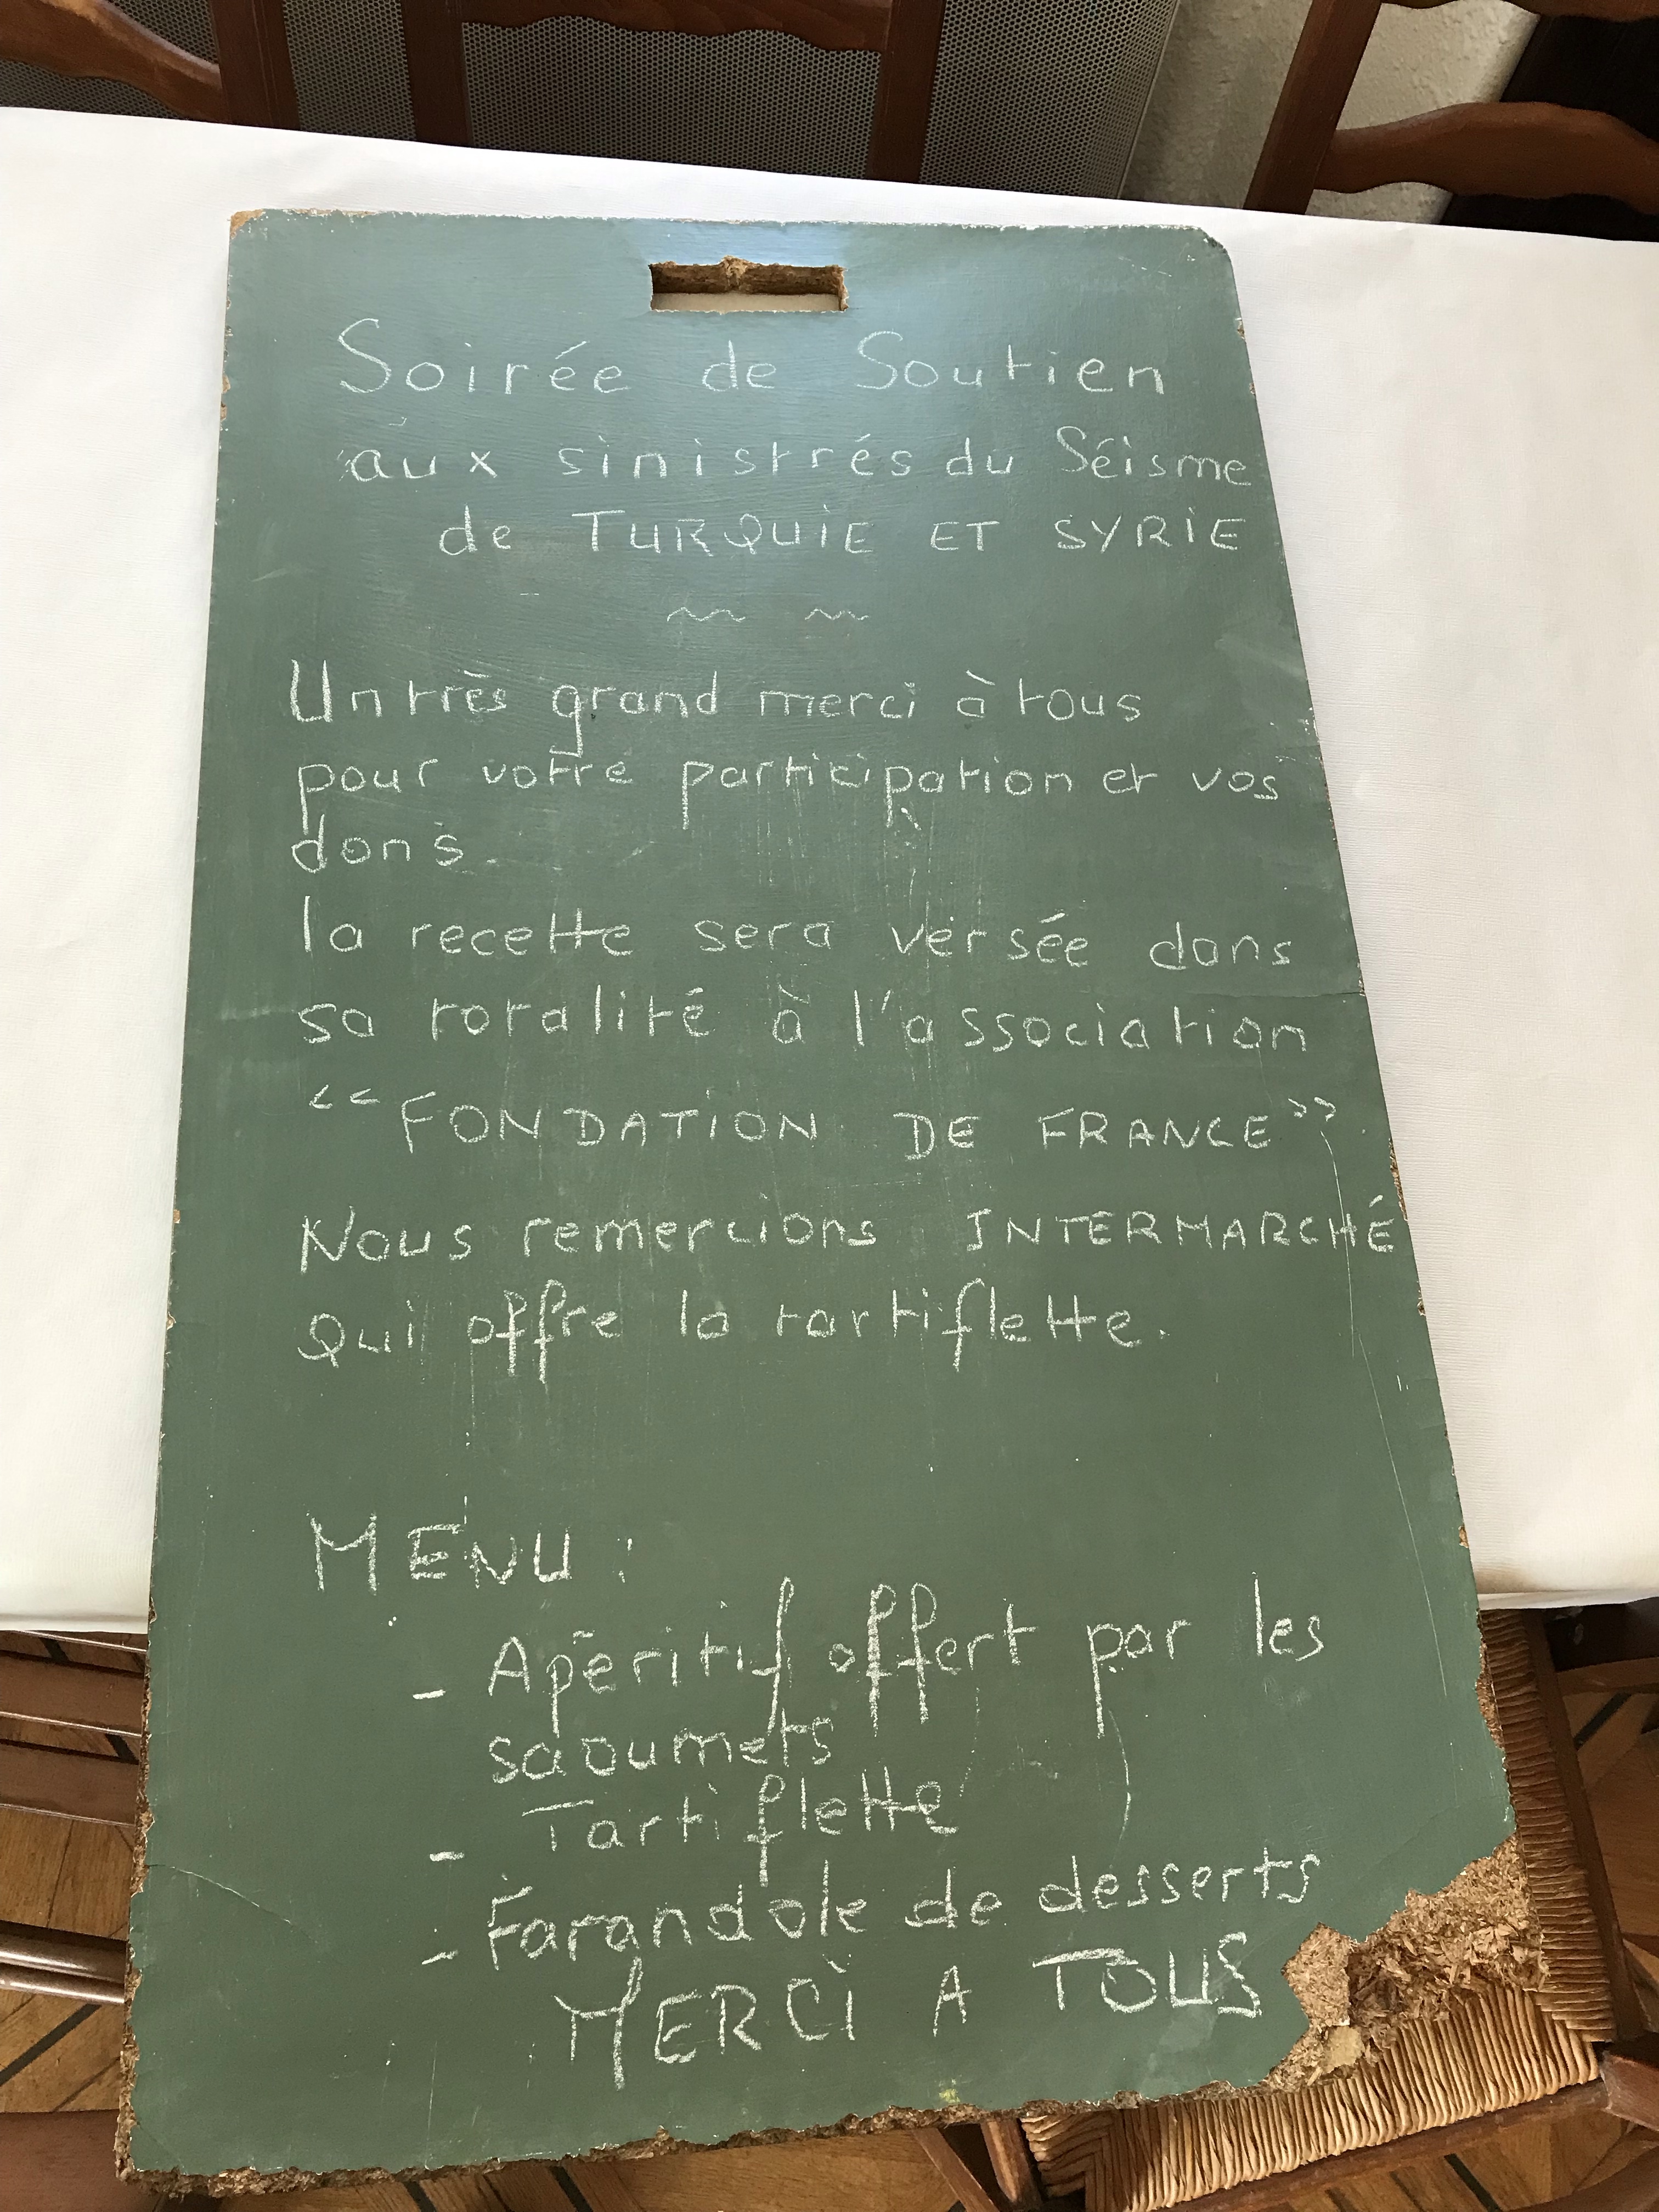 Soirée de Soutien
aux sinistrés du Séisme
de TURQUIE ET SYRIE
~ ~
Un très grand merci à tous
pour votre participation et vos
dons.
la recette sera versée dans
sa totalité à l'association
“FONDATION DE FRANCE”.
Nous remercions INTERMARCHÉ
qui offre la tartiflette.
MENU :
- Apéritif offert par les
saoumets
- Tartiflette
- Farandole de desserts
MERCI A TOUS